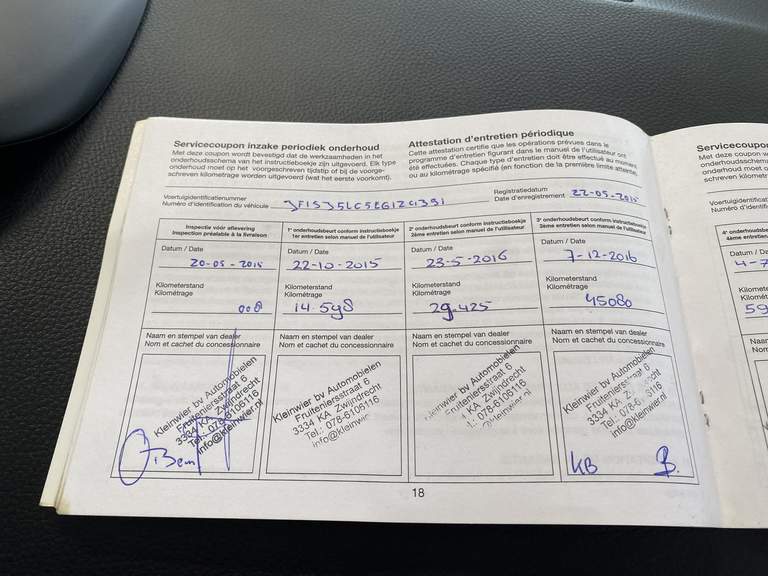 Servicecoupon inzake periodiek onderhoud
Met deze coupon wordt bevestigd dat de werkzaamheden in het
onderhoudsschema van het instructieboekje zijn uitgevoerd. Elk type
onderhoud moet op het voorgeschreven tijdstip of bij de voorge-
schreven kilometrage worden uitgevoerd (wat het eerste voorkomt).
Attestation d'entretien périodique
Cette attestation certifie que les opérations prévues dans le
programme d'entretien figurant dans le manuel de l'utilisateur ont
été effectuées. Chaque type d'entretien doit être effectué au moment
ou au kilométrage spécifié (en fonction de la première limite atteinte).
Voertuigidentificatienummer
Numéro d'identification du véhicule
Registratiedatum
Date d'enregistrement 22-05-2015
Inspectie vóór aflevering
Inspection préalable à la livraison
Datum / Date
20-05-2015
Kilometerstand
Kilométrage
008
Naam en stempel van dealer
Nom et cachet du concessionnaire
Kleinwier bv Automobielen
Fruiteniersstraat 6
3334 KA Zwijndrecht
Tel.: 078-6106116
info@kleinwier.nl
1e onderhoudsbeurt conform instructieboekje
1er entretien selon manuel de l'utilisateur
Datum / Date
22-10-2015
Kilometerstand
Kilométrage
14.598
Naam en stempel van dealer
Nom et cachet du concessionnaire
Kleinwier bv Automobielen
Fruiteniersstraat 6
3334 KA Zwijndrecht
Tel.: 078-6106116
info@kleinwie
2e onderhoudsbeurt conform instructieboekje
2ème entretien selon manuel de l'utilisateur
Datum / Date
23-5-2016
Kilometerstand
Kilométrage
29.425
Naam en stempel van dealer
Nom et cachet du concessionnaire
Kleinwier bv Automobielen
Fruiteniersstraat 6
KA Zwijndrecht
.: 078-6106116
@kleinwier.nl
3e onderhoudsbeurt conform instructieboekje
3ème entretien selon manuel de l'utilisateur
Datum / Date
7-12-2016
Kilometerstand
Kilométrage
45080
Naam en stempel van dealer
Nom et cachet du concessionnaire
Kleinwier bv Automobielen
Fruiteniersstraat 6
3334 KA Zwijndrecht
Tel.: 078-6 6116
info@kleinwier.nl
KB B.
18
Servicecoupon
Met deze coupon w
onderhoudsschema
onderhoud moet o
schreven kilometra
Voertuigidentific
Numéro d'identifi
4e onderho
4ème entretie
Datum / Da
4-7
Kilomete
Kilométr
59
Naam
Nom e